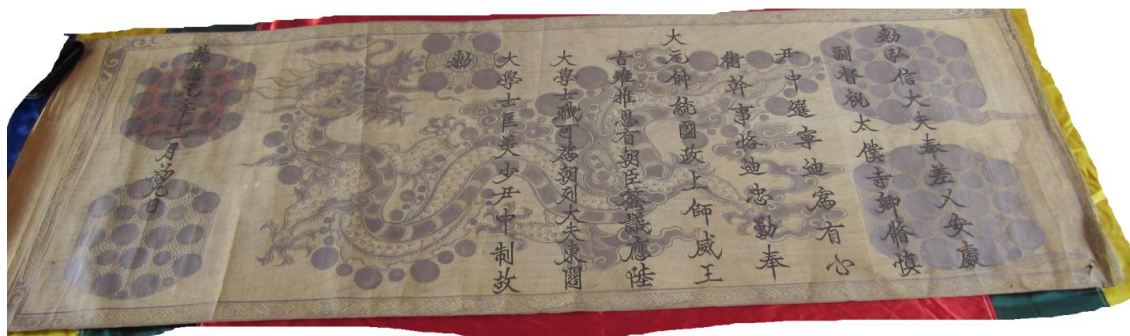 勅弘信大夫奉差乂安處
副督視太僕寺卿脩慎
尹申選寧迪為有心
術幹事恪迪忠勤奉
大元帥統國政上師威王
旨准推恩有朝臣答議應陞
大學士職可為朝列大夫東閣
大學士匡美少尹中制故
勅
月初九日